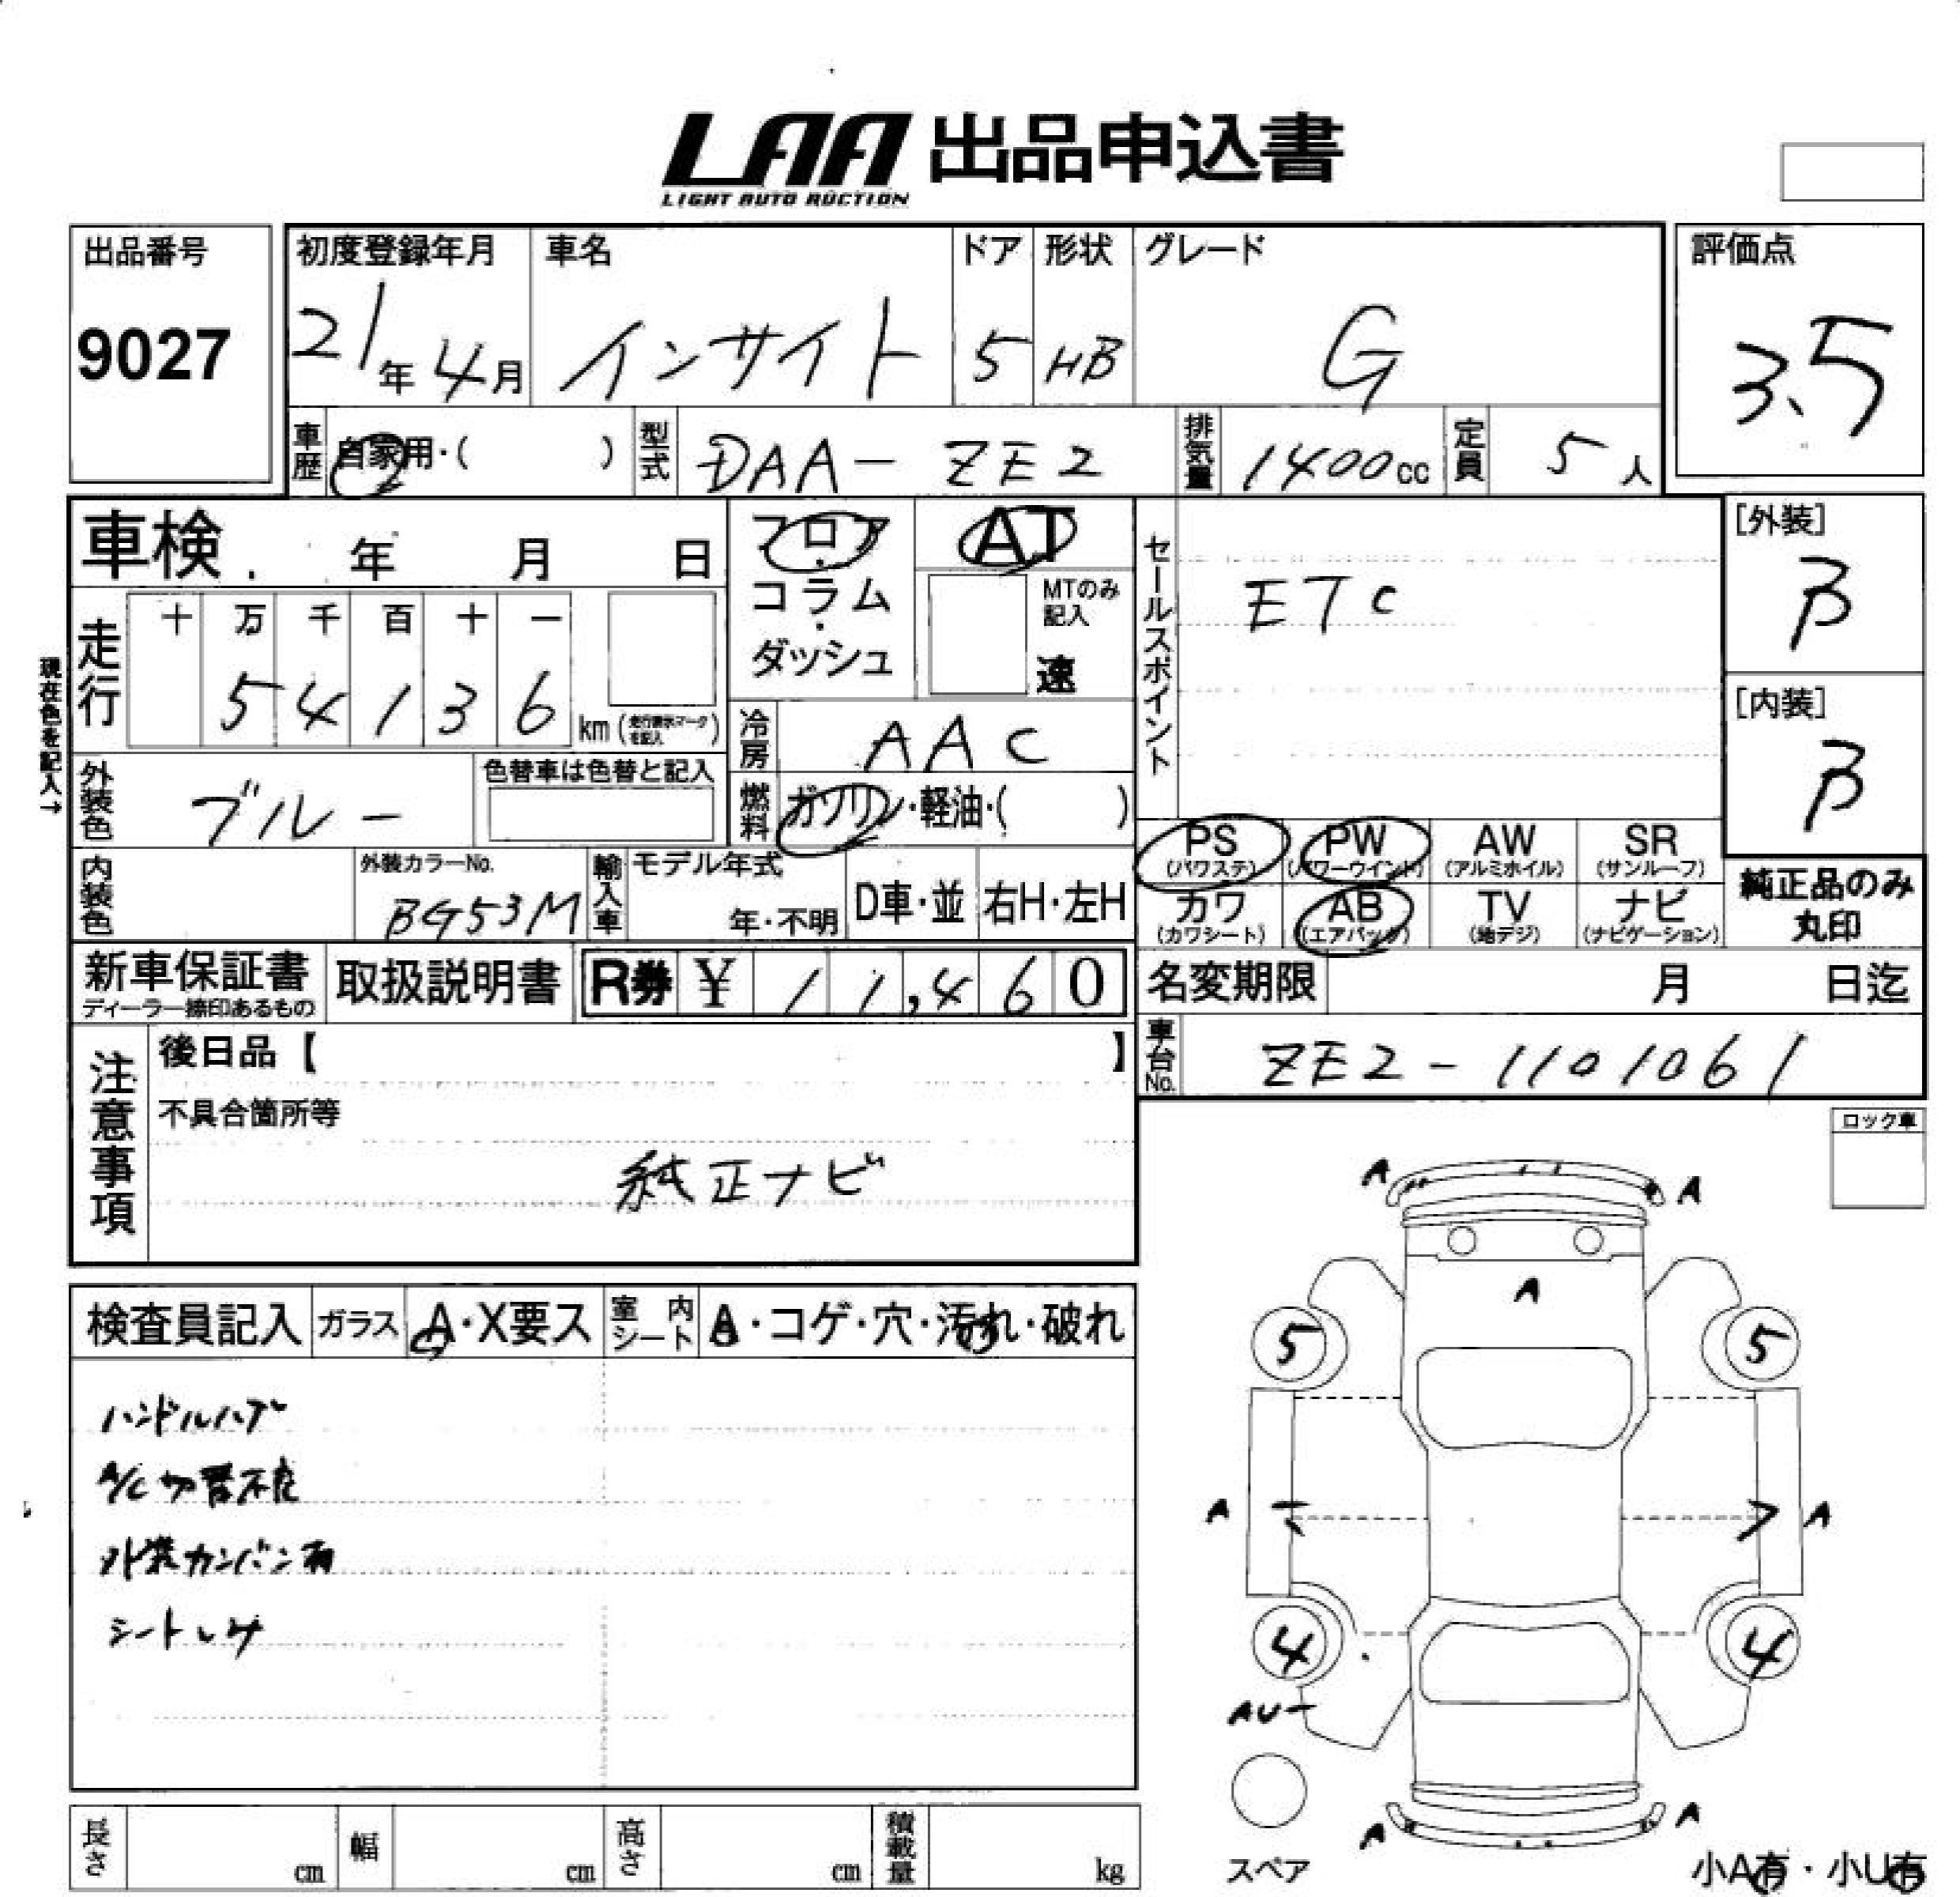 LAA 出品申込書
LIGHT AUTO AUCTION
出品番号
9027
初度登録年月
21年 4月
車名
インサイト
ドア
5
形状
HB
グレード
G
評価点
3.5
車歴
自家用・( )
型式
DAA-ZE2
排気量
1400cc
定員
5人
車検 年 月 日
フロア・コラム・ダッシュ
AT
MTのみ記入
速
セールスポイント
ETC
[外装]
β
[内装]
β
現在色を記入→
走行
十 万 千 百 十 一
5 4 1 3 6 km (走行表示マークを記入)
冷房
AAC
外装色
ブルー
色替車は色替と記入
燃料
ガソリン・軽油・( )
PS (パワステ)
PW (パワーウインド)
AW (アルミホイル)
SR (サンルーフ)
カワ (カワシート)
AB (エアバック)
TV (地デジ)
ナビ (ナビゲーション)
純正品のみ丸印
内装色
外装カラーNo.
BG53M
輸入車
モデル年式
年・不明
D車・並
右H・左H
新車保証書
ディーラー捺印あるもの
取扱説明書
R券 ¥ 11,460
名変期限 月 日迄
車台No.
ZE2-1101061
注意事項
後日品【 】
不具合箇所等
純正ナビ
ロック車
検査員記入
ガラス
A・X要ス
室内シート
A・コゲ・穴・汚れ・破れ
ハンドルハゲ
A/C切替不良
外装カンバン有
シートしみ
A
A
A
5
5
A
A
4
4
AU
A
A
スペア
小A有・小U有
長さ cm
幅 cm
高さ cm
積載量 kg